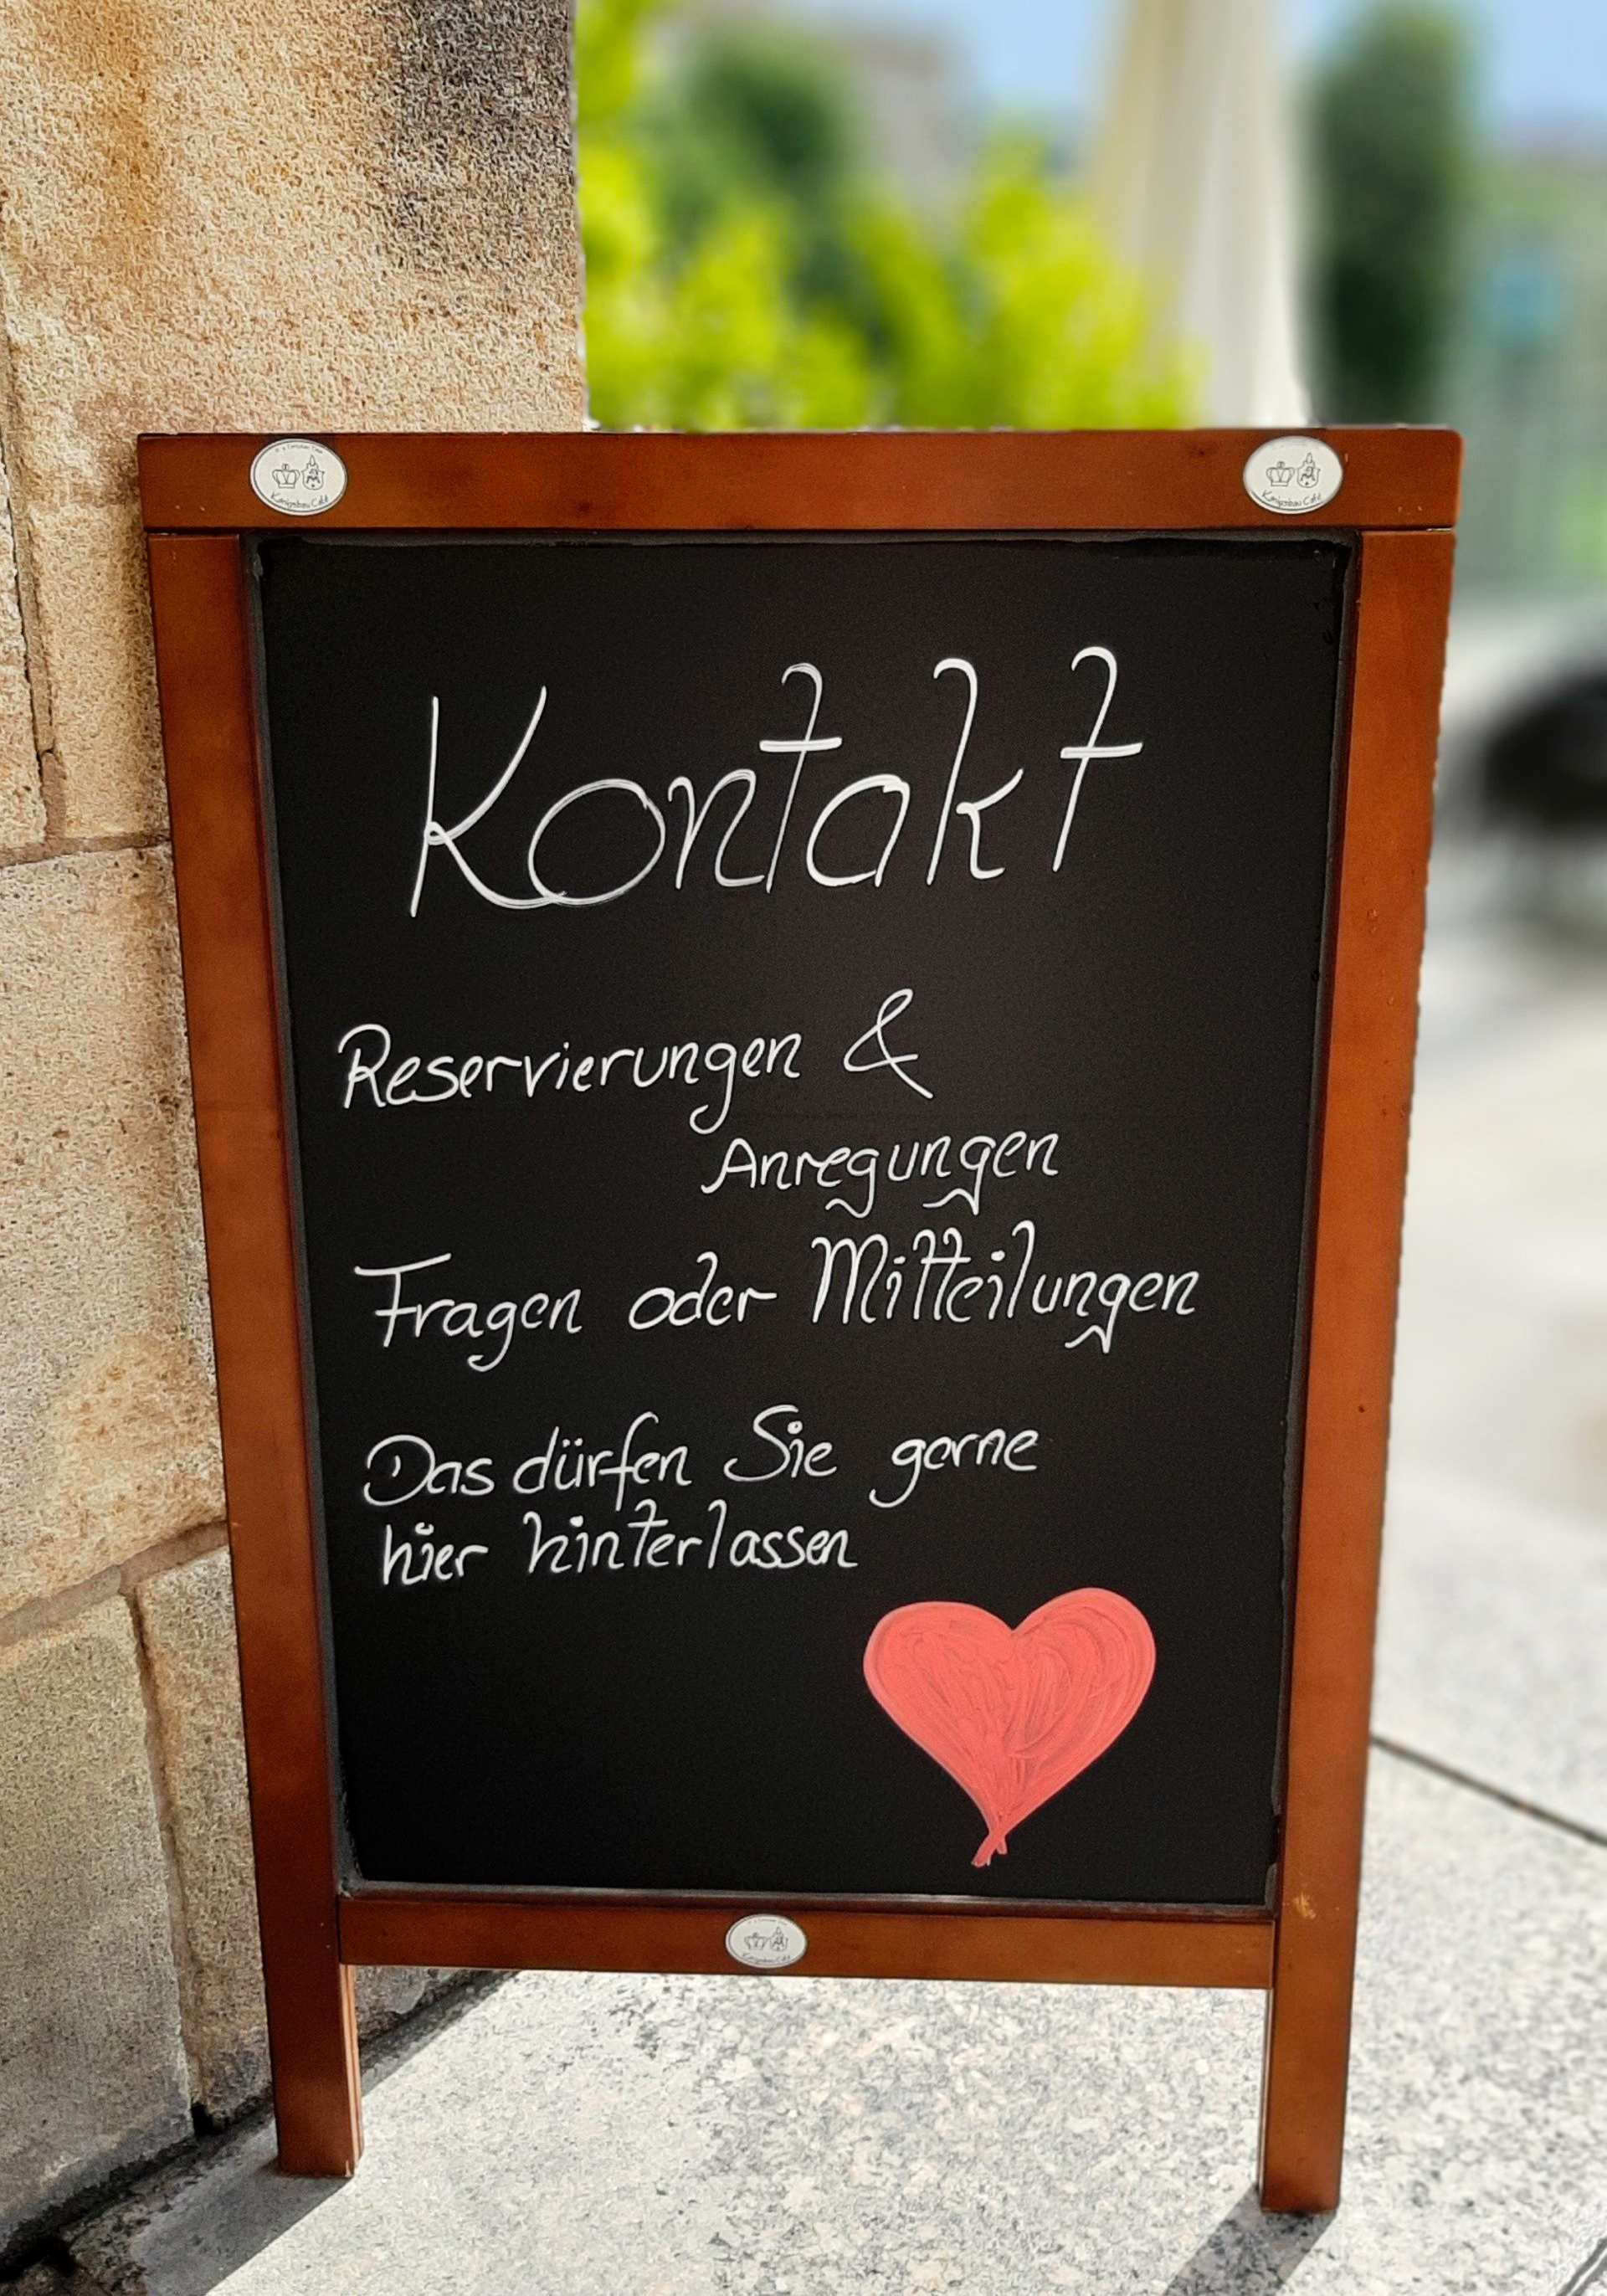 Königsbau Café
Königsbau Café
Kontakt
Reservierungen &
Anregungen
Fragen oder Mitteilungen
Das dürfen Sie gerne
hier hinterlassen
Königsbau Café